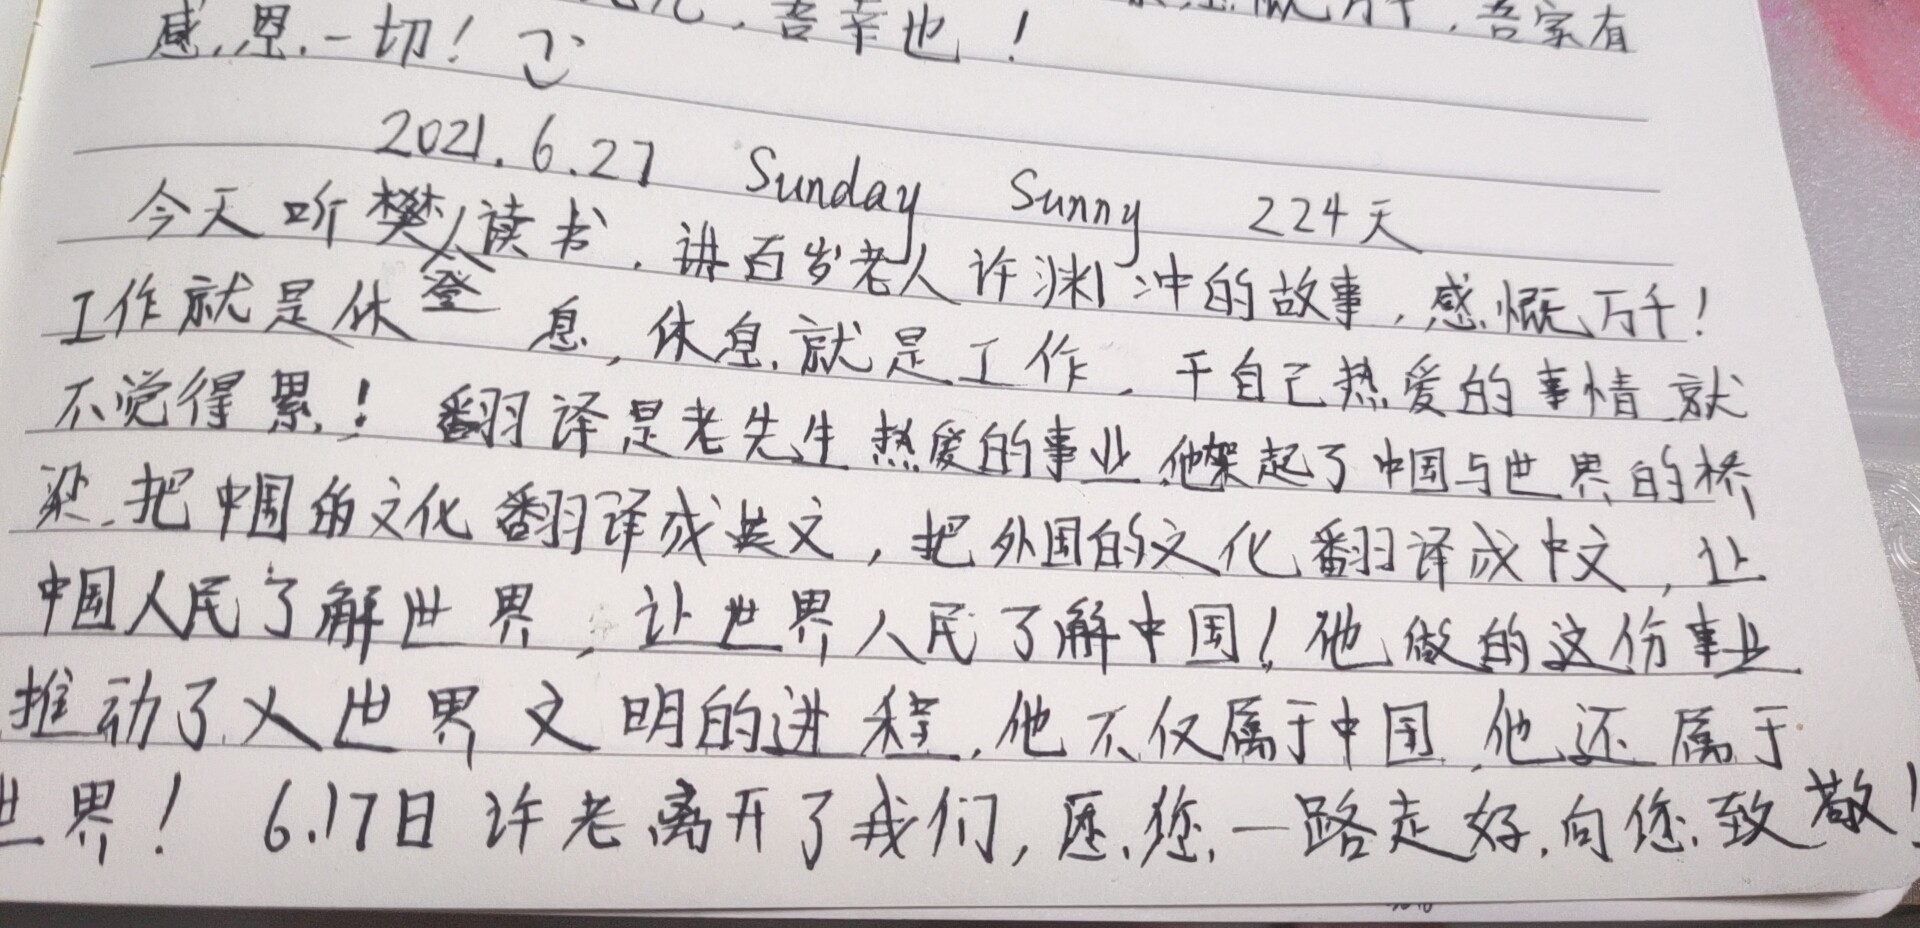 感慨万千，吾家有
，吾幸也！
感恩一切！
2021.6.27 Sunday Sunny 224天
今天听樊登读书，讲百岁老人许渊冲的故事，感慨万千！
工作就是休息，休息就是工作，干自己热爱的事情就
不觉得累！翻译是老先生热爱的事业，他架起了中国与世界的桥
梁，把中国的文化翻译成英文，把外国的文化翻译成中文，让
中国人民了解世界，让世界人民了解中国！他做的这份事业
推动了人世界文明的进程，他不仅属于中国，他还属于
世界！6.17日许老离开了我们，愿您一路走好，向您致敬！